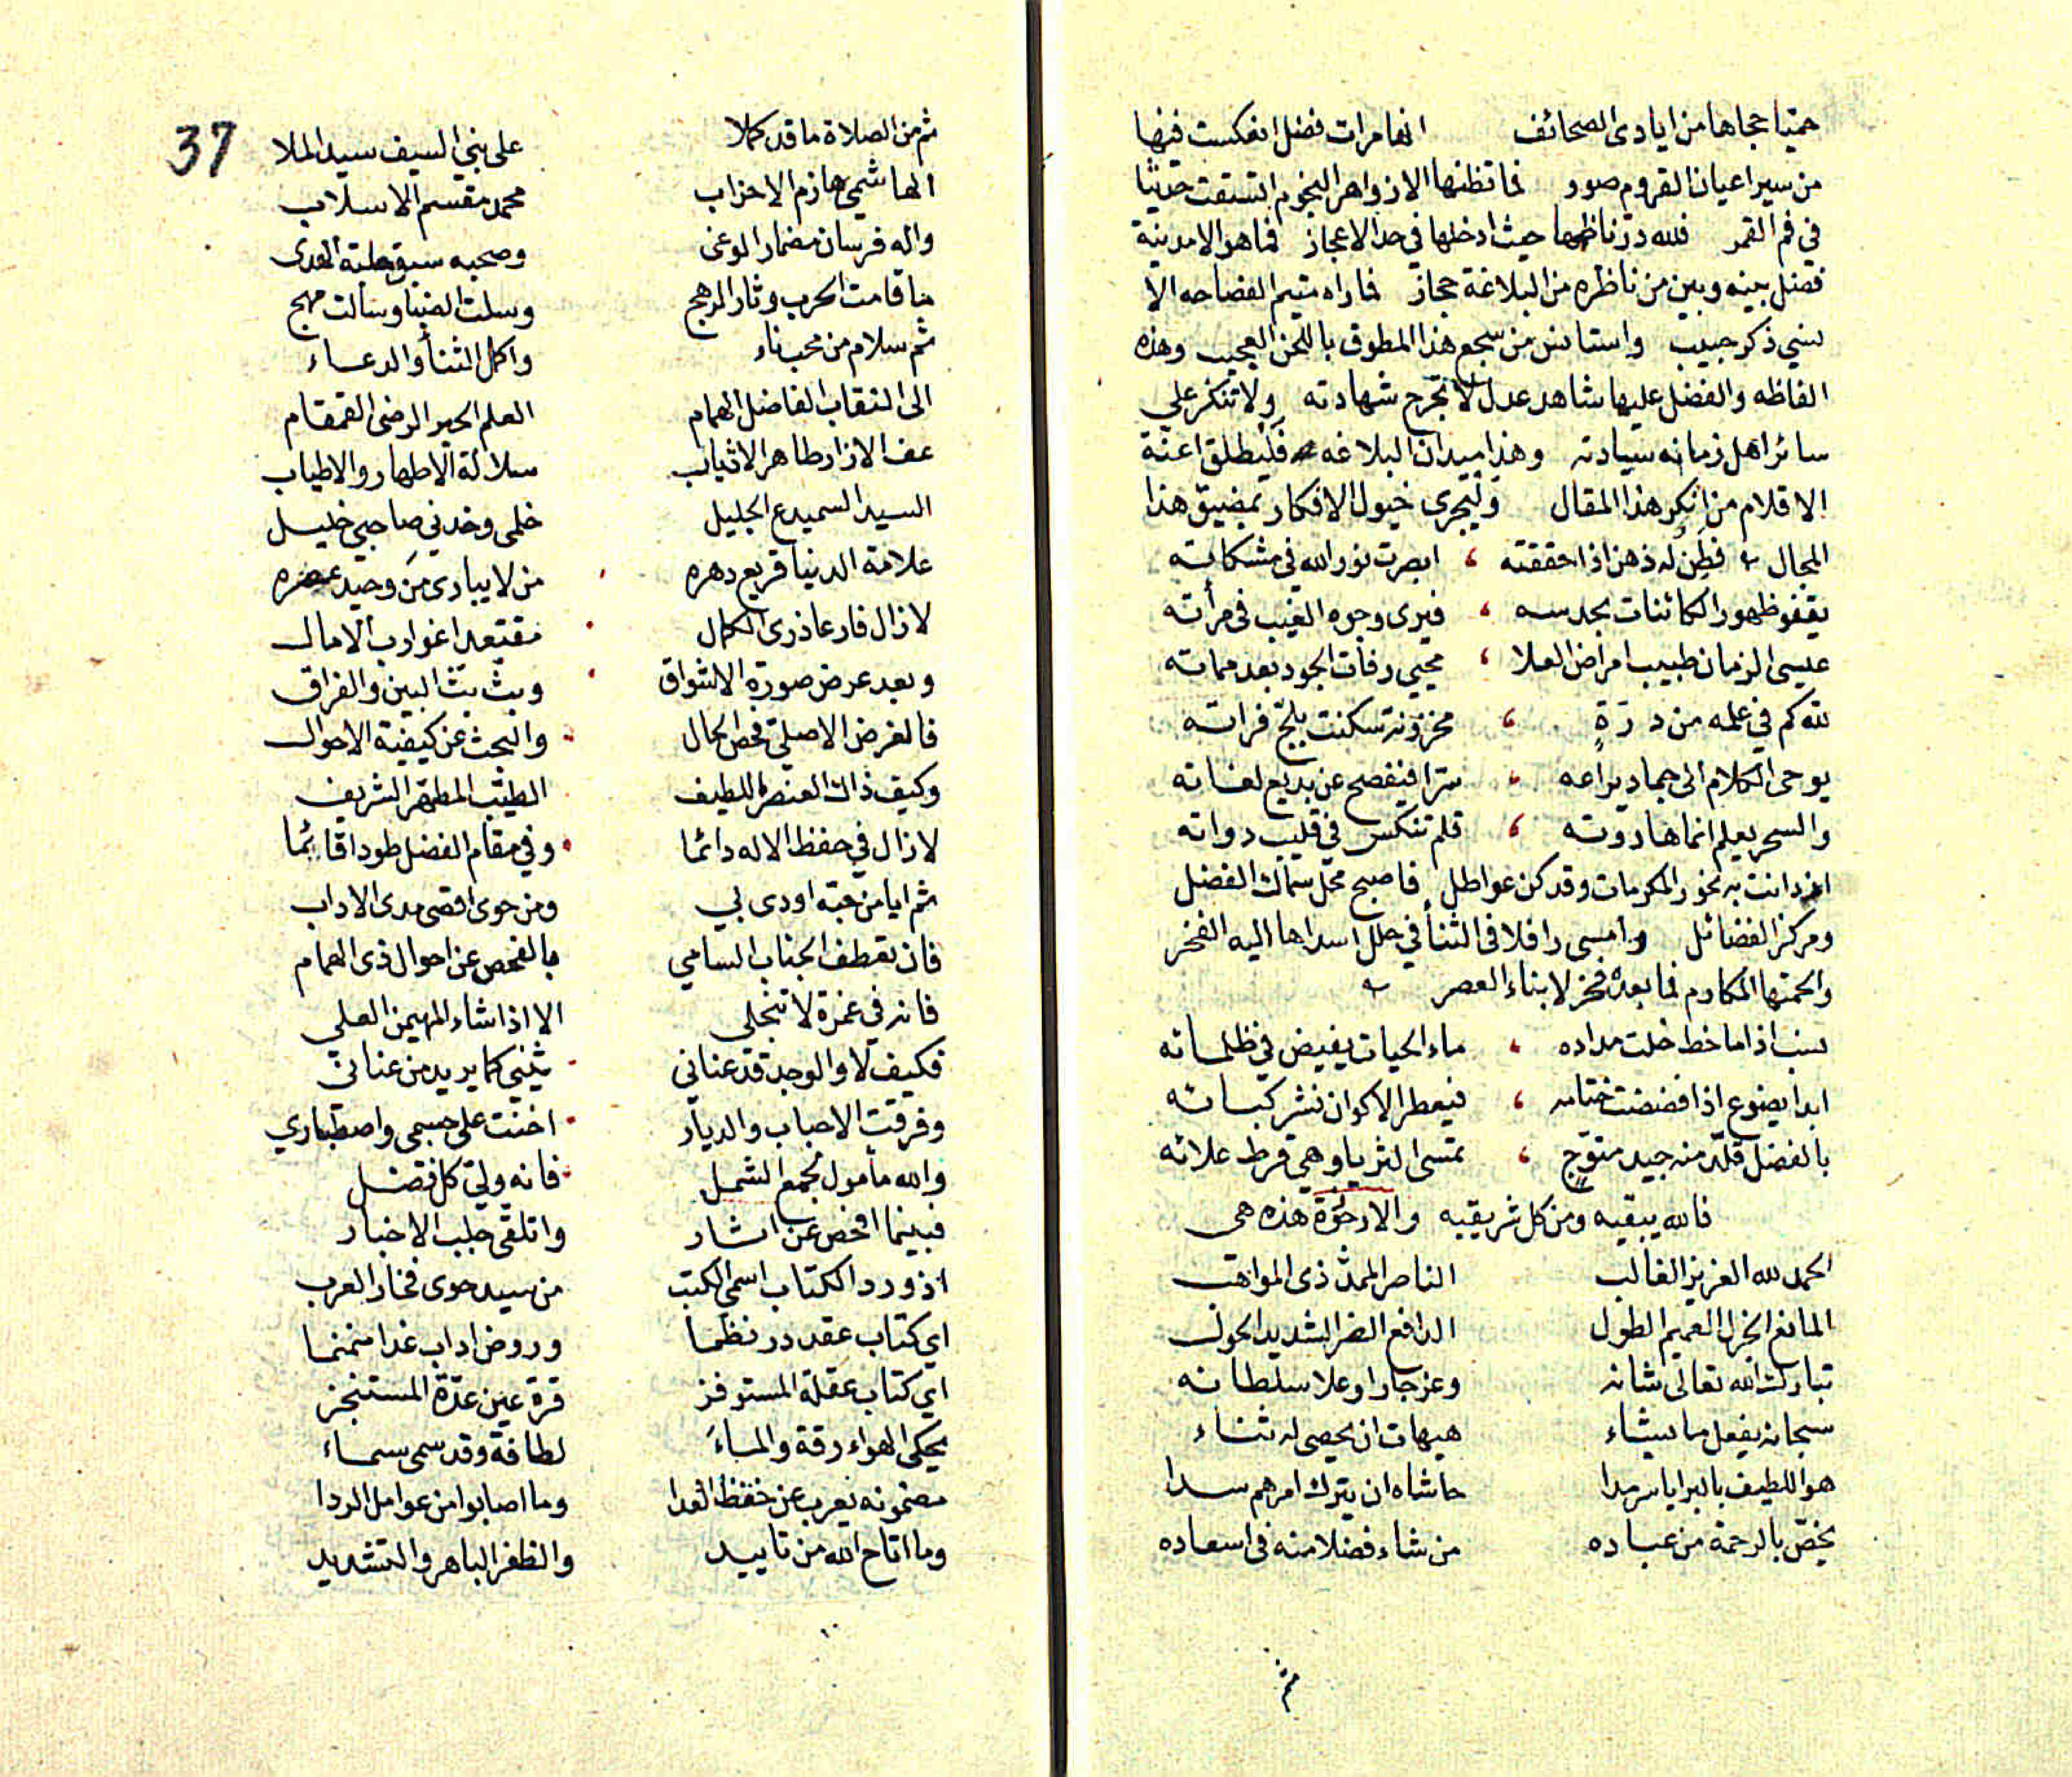 حميا حجاها من ايادى الصحائف انها مرات فضل انعكست فيها
من سير اعيان القروم صور فما تظنها الا زواهر النجوم اتسقت حيثما
في فم القمر فلله در ناظمها حيث ادخلها في حد الاعجاز فما هو الا مدينة
فضل بينه وبين من ناظره من البلاغة حجاز فما راه متيم الفصاحه الا
نسي ذكر حبيب واستانس من سجع هذا المطوق باللحن العجيب وهذه
الفاظه والفضل عليها شاهد عدل لا تجرح شهادته ولا تنكر علي
سائر اهل زمانه سيادته وهذا ميدان البلاغه فليطلق اعنة
الاقلام من انكر هذا المقال وليجرى خيول الافكار بمضيق هذا
المجال فطن له ذهن اذا حققته ابصرت نور الله في مشكاته
يقفو ظهور الكائنات بحدسه فيرى وجوه الغيب فى مرأته
عيسى الزمان طبيب امراض العلا محيي رفات الجود بعد مماته
لله كم في علمه من درة مخزونة سكنت بلج فراته
يوحى الكلام الى جماد يراعه سرا فيفصح عن بديع لغاته
والسحر يعلم انما هاروته قلم تنكس فى قليب دواته
ازدانت به نحور المكرمات وقد كن عواطل فاصبح محل سماك الفضل
ومركز الفضائل وامسى رافلا فى الثنأ في حلل اسداها اليه الفخر
والحمتها المكارم فما بعده فخر لابناء العصر
ندب اذا ما خط خلت مداده ماء الحيات يفيض في ظلماته
ابدا يضوع اذا فضضت ختامه فيعطر الاكوان نشر كباته
بالفضل قلد منه جيد متوج تمسى الثريا وهي قرط علاته
فالله يبقيه ومن كل شر يقيه والارجوزة هذه هى
الحمد لله العزيز الغالب الناصر الممد ذى المواهب
المانح الجزل العميم الطول الدافع الضر الشديد الحول
تبارك الله تعالى شانه وعز جارا وعلا سلطانه
سبحانه يفعل ما يشاء هيهات ان يحصى له ثناء
هو اللطيف بالبرايا سرمدا حاشاه ان يترك امرهم سدا
يخص بالرحمة من عباده من شاء فضلا منه فى اسعاده
37
ثم من الصلاة ما قد كملا على نبي السيف سيد الملا
الهاشمي هازم الاحزاب محمد مقسم الاسلاب
واله فرسان مضمار الوغى وصحبه سبق حلبة الهدى
ما قامت الحرب وثار الرهج وسلت الضبا وسالت مهج
ثم سلام من محب ناء واكمل الثنأ والدعاء
الى النقاب الفاضل الهمام العلم الحبر الرضى القمقام
عف الازار طاهر الاثياب سلالة الاطهار والاطياب
السيد السميدع الجليل خلمى وخدني صاحبي خليل
علامة الدنيا قريع دهره من لا يبارى من وحيد عصره
لا زال فارعا ذرى الكمال مقتعدا غوارب الامال
وبعد عرض صورة الاشواق وبث بث البين والفراق
فالغرض الاصلي فحص الحال والبحث عن كيفية الاحوال
وكيف ذاك العنصر اللطيف الطيب المطهر الشريف
لا زال في حفظ الاله دائما وفي مقام الفضل طودا قائما
ثم ايا من حبه اودى بي ومن حوى اقصى مدى الاداب
فان تعطف الجناب السامي بالفحص عن احوال ذى الهمام
فانه في غمرة لا تنجلى الا اذا شاء المهيمن العلى
فكيف لا والوجد قد عناني يثني كما يريد من عناني
وفرقت الاحباب والديار اخنت على جسمى واصطباري
والله مأمول لجمع الشمل فانه ولي كل فضل
فبينما افحص عن اشار واتلقى جلب الاخبار
اذ ورد الكتاب اسمى الكتب من سيد حوى فخار العرب
اي كتاب عقد در نظما وروض اداب غدا منمنما
اي كتاب عقلة المستوفز قرة عين عدة المستنجز
يحكى الهواء رقة والماء لطافة وقد سمى سماء
مضمونه يعرب عن خفظ العدا وما اصابوا من عوامل الردا
وما اتاح الله من تاييد والظفر الباهر والتشديد